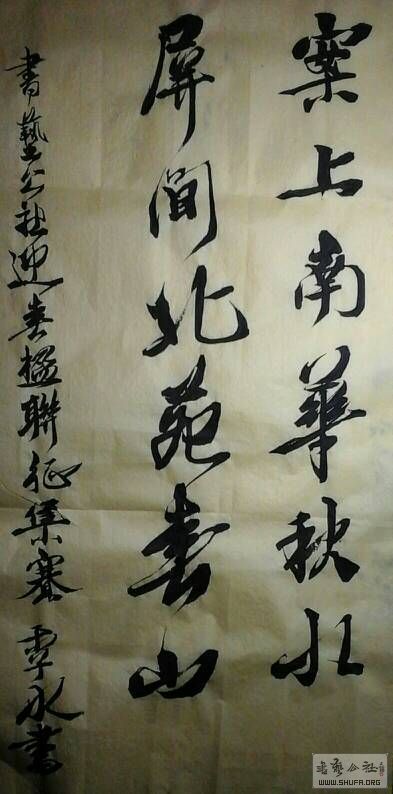 案上南華秋水
屏間北苑春山
書藝公社迎春楹聯征集賽 雲水書
書藝公社
WWW.SHUFA.ORG